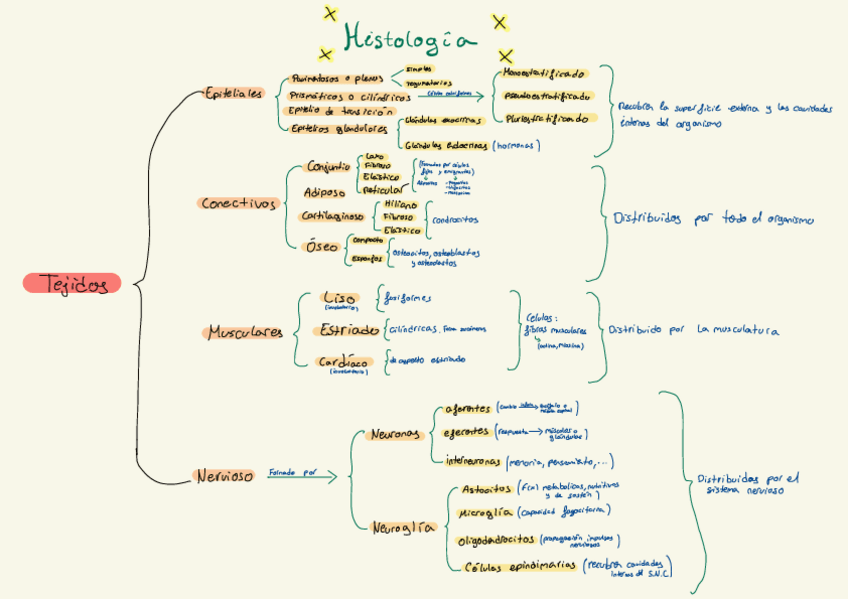 Histología
Tejidos
Epiteliales
Pavimentosos o planos
simples
Prismáticos o cilíndricos
Epitelio de transición
Epitelios glandulares
Glándulas exocrinas
Glándulas endocrinas (hormonas)
Monoestratificado
pseudoestratificado
Pluriestratificado
Recubren la superficie externa y las cavidades
internas del organismo
Conectivos
Conjuntivo
Laxo
Fibroso
Elástico
Reticular
(Formados por células
fijas y emigrantes)
Adiposo
Cartilaginoso
Hiliano
Fibroso
Elástico
condrocitos
Óseo
compacto
Esponjoso
osteocitos, osteoblastos
y osteoclastos
Distribuidos por todo el organismo
Musculares
Liso
(involuntario)
fusiformes
Estriado
cilíndricas.
Cardíaco
(involuntario)
de aspecto estriado
Células:
fibras musculares
(actina, miosina)
Distribuido por la musculatura
Nervioso
Formado por
Neuronas
aferentes
eferentes (respuesta → músculos o
glándulas)
interneuronas (memoria, pensamiento,...)
Neuroglía
Astocitos
metabólicas, nutritivas
y de sostén)
Microglía (capacidad fagocitaria)
Oligodadrocitos (propagación impulsos
nerviosos)
Células epindimarias (recubren cavidades
internas del S.N.C)
Distribuidas por el
sistema nervioso